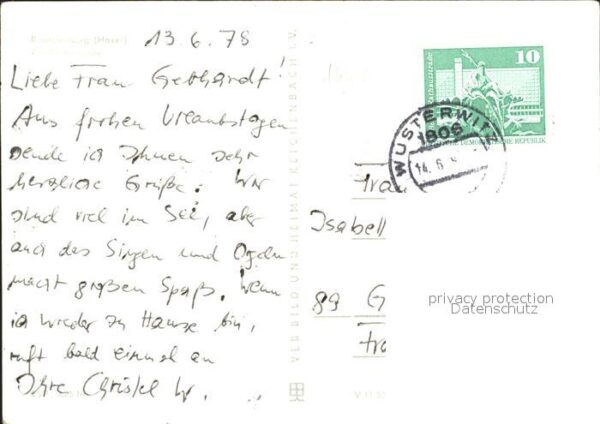 13.6.78
Liebe Frau Gebhardt!
Aus frohen Urlaubstagen
sende ich Ihnen sehr
herzliche Grüße. Wir
sind viel im See, aber
auch das Singen und
macht großen Spaß. Wenn
ich wieder zu Hause bin,
ruft bald einmal an
Ihre Christel W.
VEB BILD UND HEIMAT REICHENBACH I. V.
10
DEUTSCHE DEMOKRATISCHE REPUBLIK
WUSTERWITZ
1806
14.6.
Frau
Isabell
89 G
privacy protection
Datenschutz
V 11 50